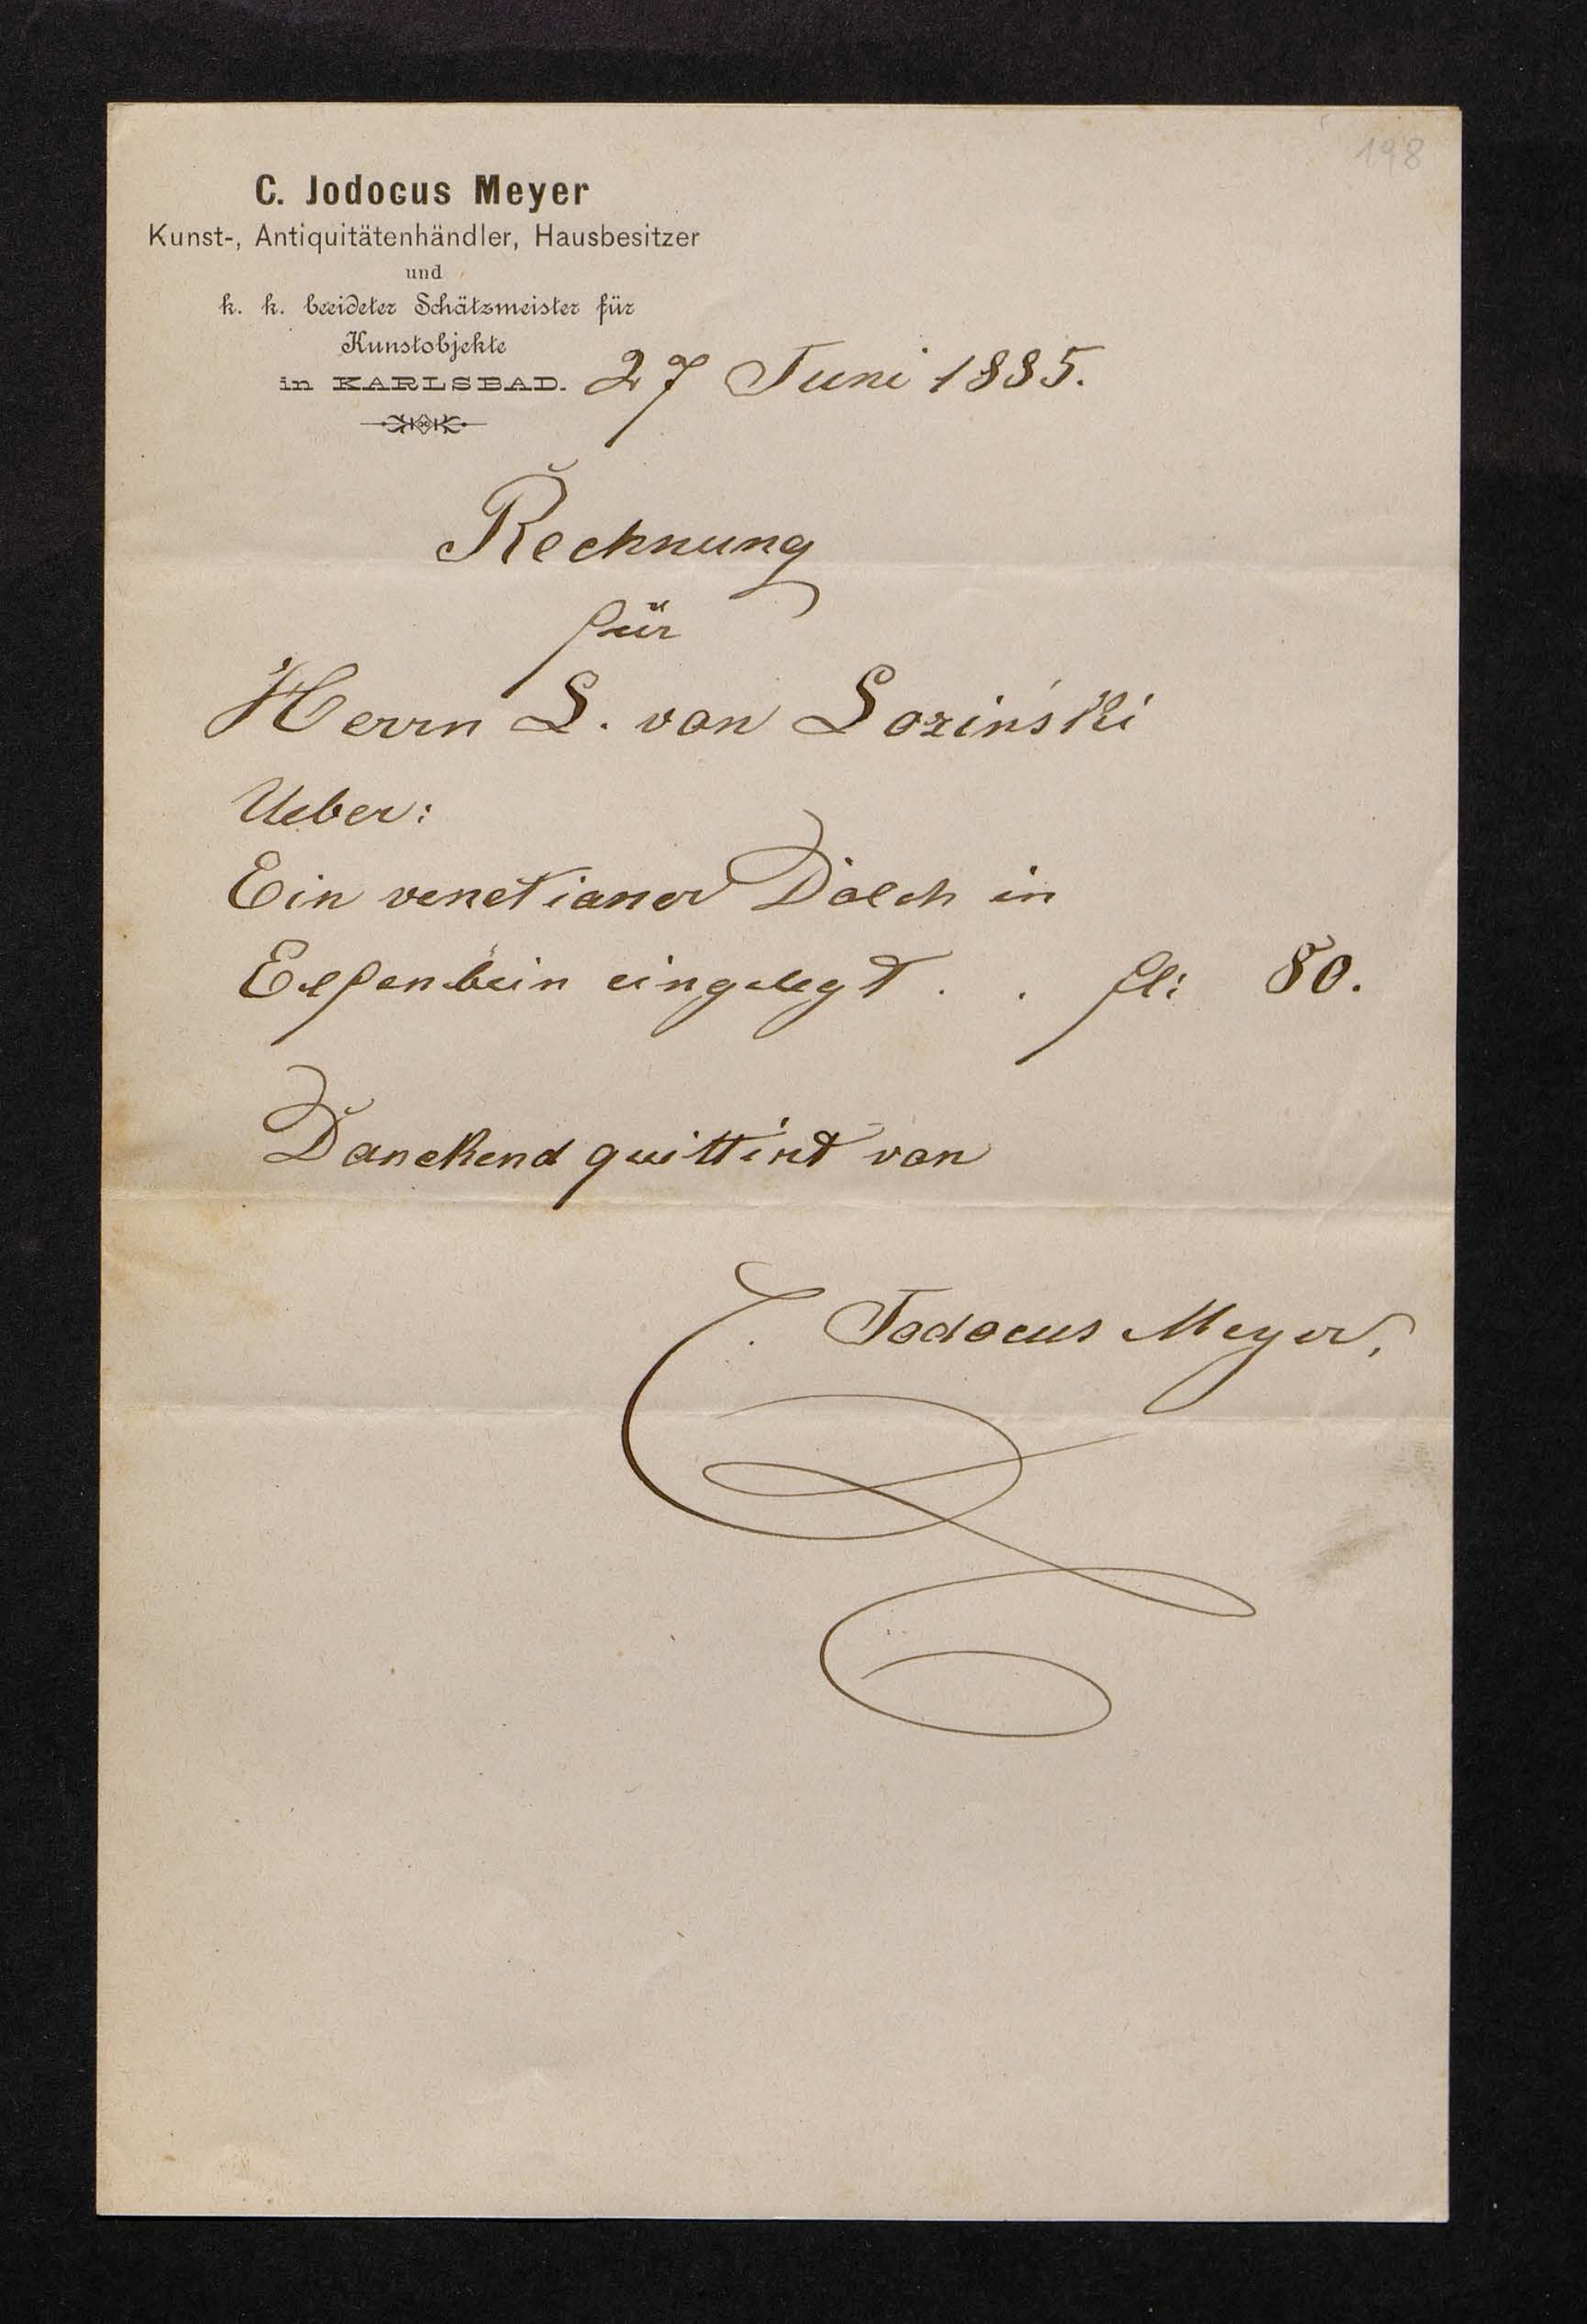 198
C. Jodocus Meyer
Kunst-, Antiquitätenhändler, Hausbesitzer
und
k. k. beeideter Schätzmeister für
Kunstobjekte
in KARLSBAD. 27 Juni 1885.
Rechnung
für
Herrn L. von Loziński
Ueber:
Ein venetianer Dolch in
Elfenbein eingelegt . . fl: 80.
Danckend quittirt von
C. Jodocus Meyer,